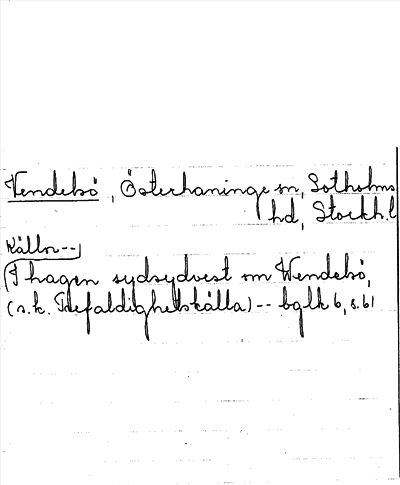 Vendelsö, Österhaninge sn, Sotholms
hd, Stockh.l
Källor--
I hagen sydsydvest om Wendelsö,
(s.k. Trefaldighetskälla) -- bglk 6, s.61